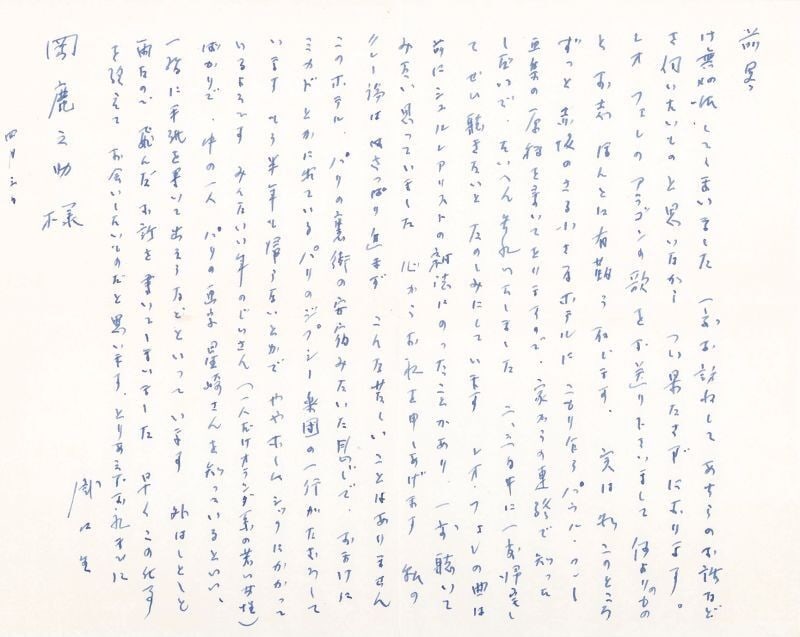 前略
御無沙汰してしまいました 一度お訪ねして あちらのお話など
を伺いたいものと思いながら つい果たさずにおります。
レオ フェレのアラゴンの歌をお送り下さいまして 何よりのもの
と お志 ほんとに有難う存じます。 実は私 このところ
ずっと 赤坂のさる小さなホテルに こもり乍ら パウル・クレ
画集の原稿を書いておりますので、家からの連絡で知った
しだいで、たいへん失礼いたしました 二、三日中に一度帰宅し
て ぜひ聴きたいと たのしみにしています レオ・フェレの曲は
前にシュルレアリストの雑誌にのったことがあり、一度 聴いて
みたい思っていました 心からお礼を申しあげます 私の
クレー論はさっぱり進まず こんな苦しいことはありません
このホテル、パリの裏街の安宿みたいた感じで、おまけに
ミカドとかに出ているパリのジプシー楽団の一行がたむろして
います もう半年も帰らないとかで ややホームシックにかかって
いるようです みんないい年のじいさん (一人だけオランダ系の若い女性)
ばかりで、中の一人 パリの画家 星崎さんを知っているといい、
一緒に手紙を書いて出そうなどといって います 外はしとしと
雨なので 飛んだお話を書いてしまいました 早くこの仕事
を終えて お会いしたいものだと思います、とりあえずお礼まで に
瀧口生
四月三日
岡鹿之助様